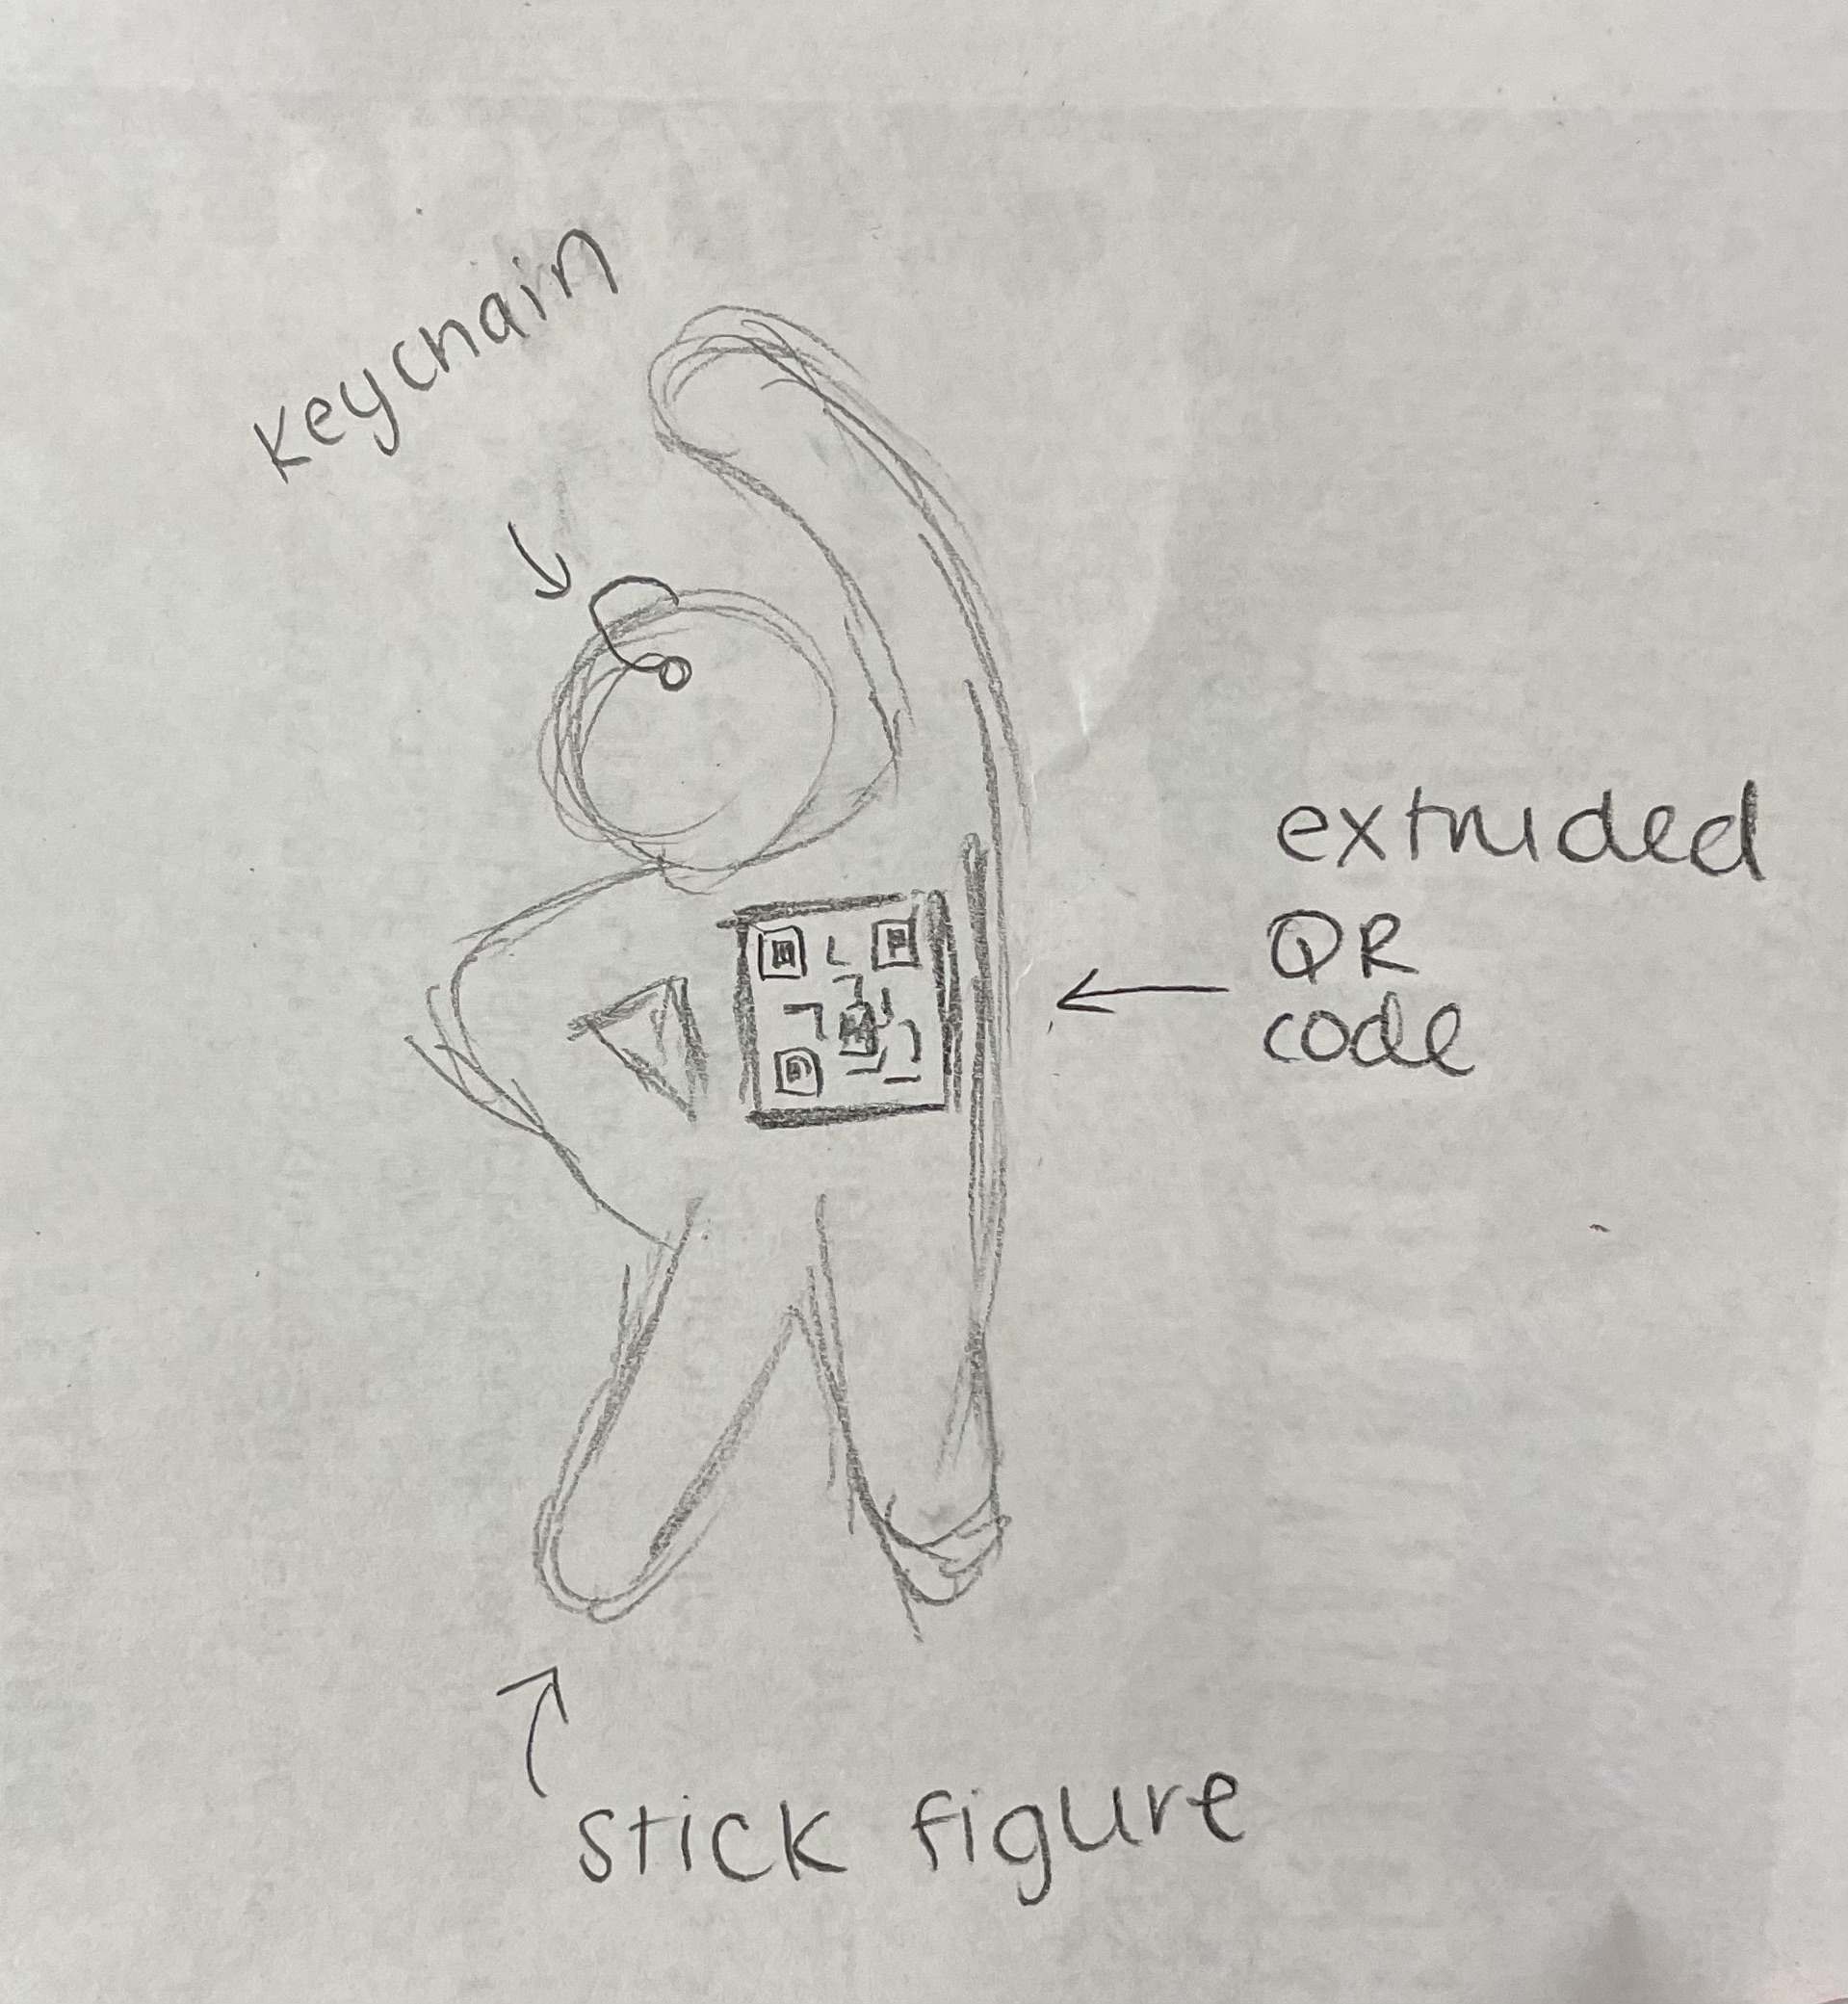 Keychain
extruded
QR
code
stick figure